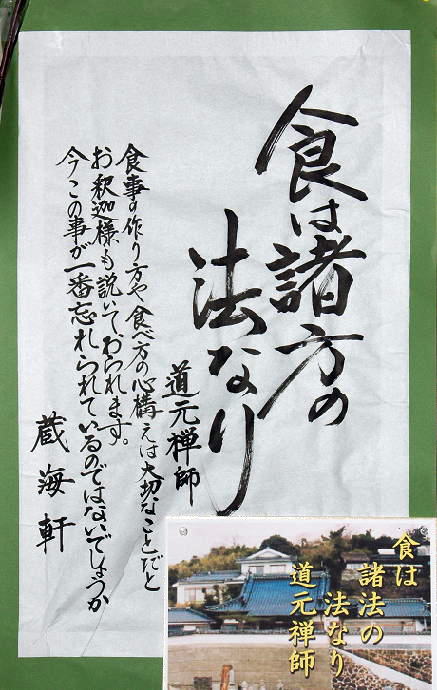 食は諸方の
法なり
道元禅師
食事の作り方や食べ方の心構えは大切なことだと
お釈迦様も説いておられます。
今この事が一番忘れられているのではないでしょうか
蔵海軒
食は
諸法の
法なり
道元禅師